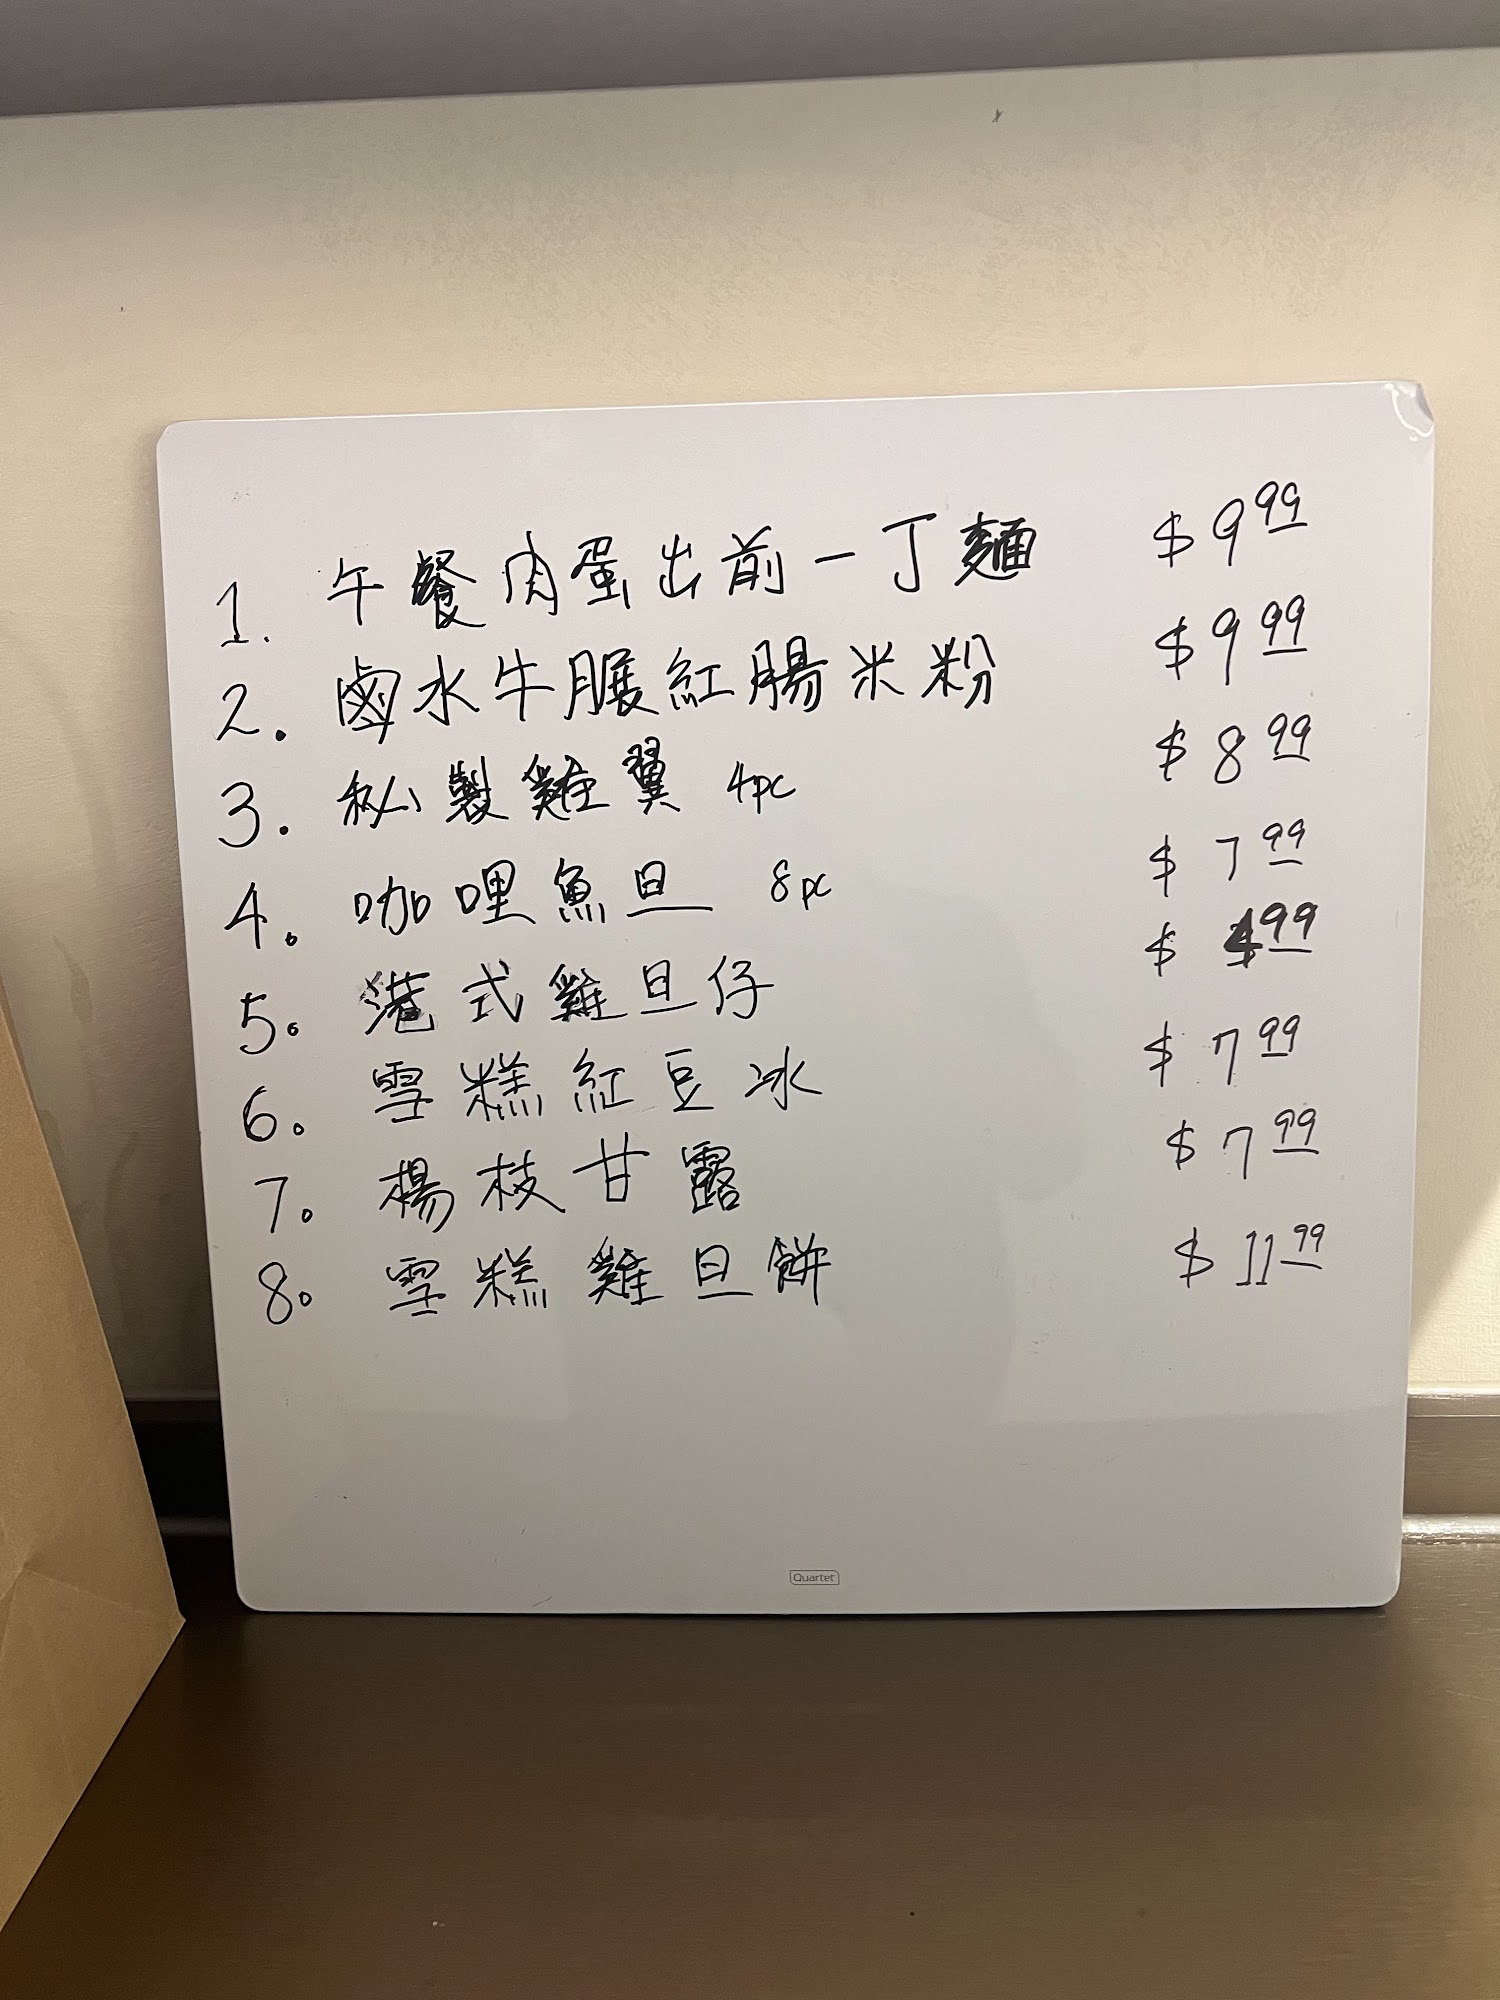 1. 午餐肉蛋出前一丁麵 $9.99
2. 鹵水牛𦟌紅腸米粉 $9.99
3. 秘製雞翼 4pc $8.99
4. 咖哩魚旦 8pc $7.99
5. 港式雞旦仔 $4.99
6. 雪糕紅豆冰 $7.99
7. 楊枝甘露 $7.99
8. 雪糕雞旦餅 $11.99
Quartet